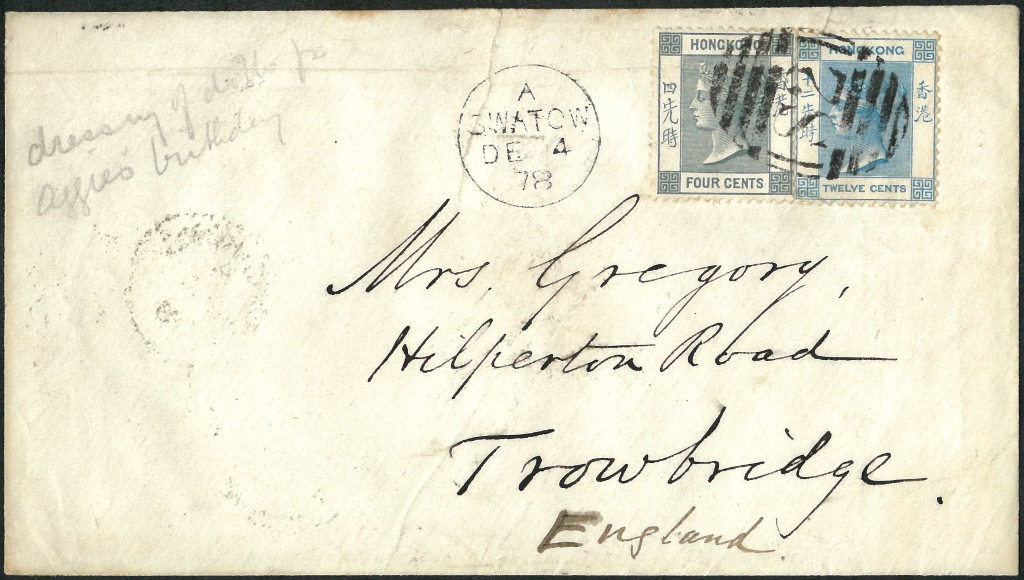 HONGKONG
四先時
香港
FOUR CENTS
HONGKONG
十二先時
香港
TWELVE CENTS
A
SWATOW
DE 4
78
dressing of dolls for
Aggie's birthday
Mrs. Gregory,
Hilperton Road
Trowbridge.
England